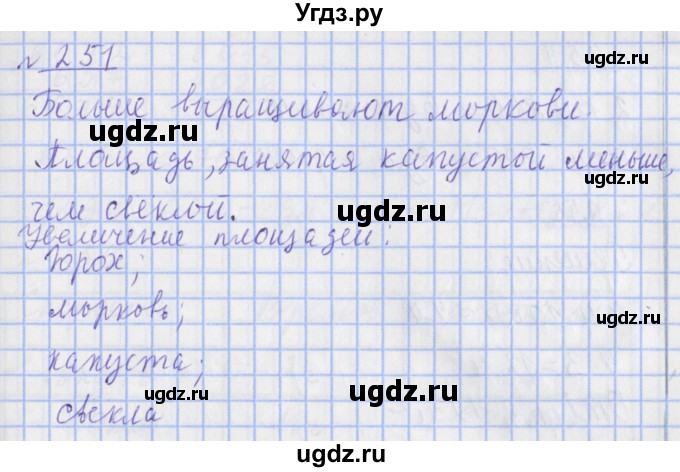 Угдз.ру
№ 251
ugdz.ru
Больше выращивают моркови.
ugdz.ru
ugdz.ru
Площадь, занятая капустой меньше,
ugdz.ru
чем свеклой.
ugdz.ru
Увеличение площадей:
Горох;
морковь;
ugdz.ru
капуста;
ugdz.ru
ugdz.ru
свекла